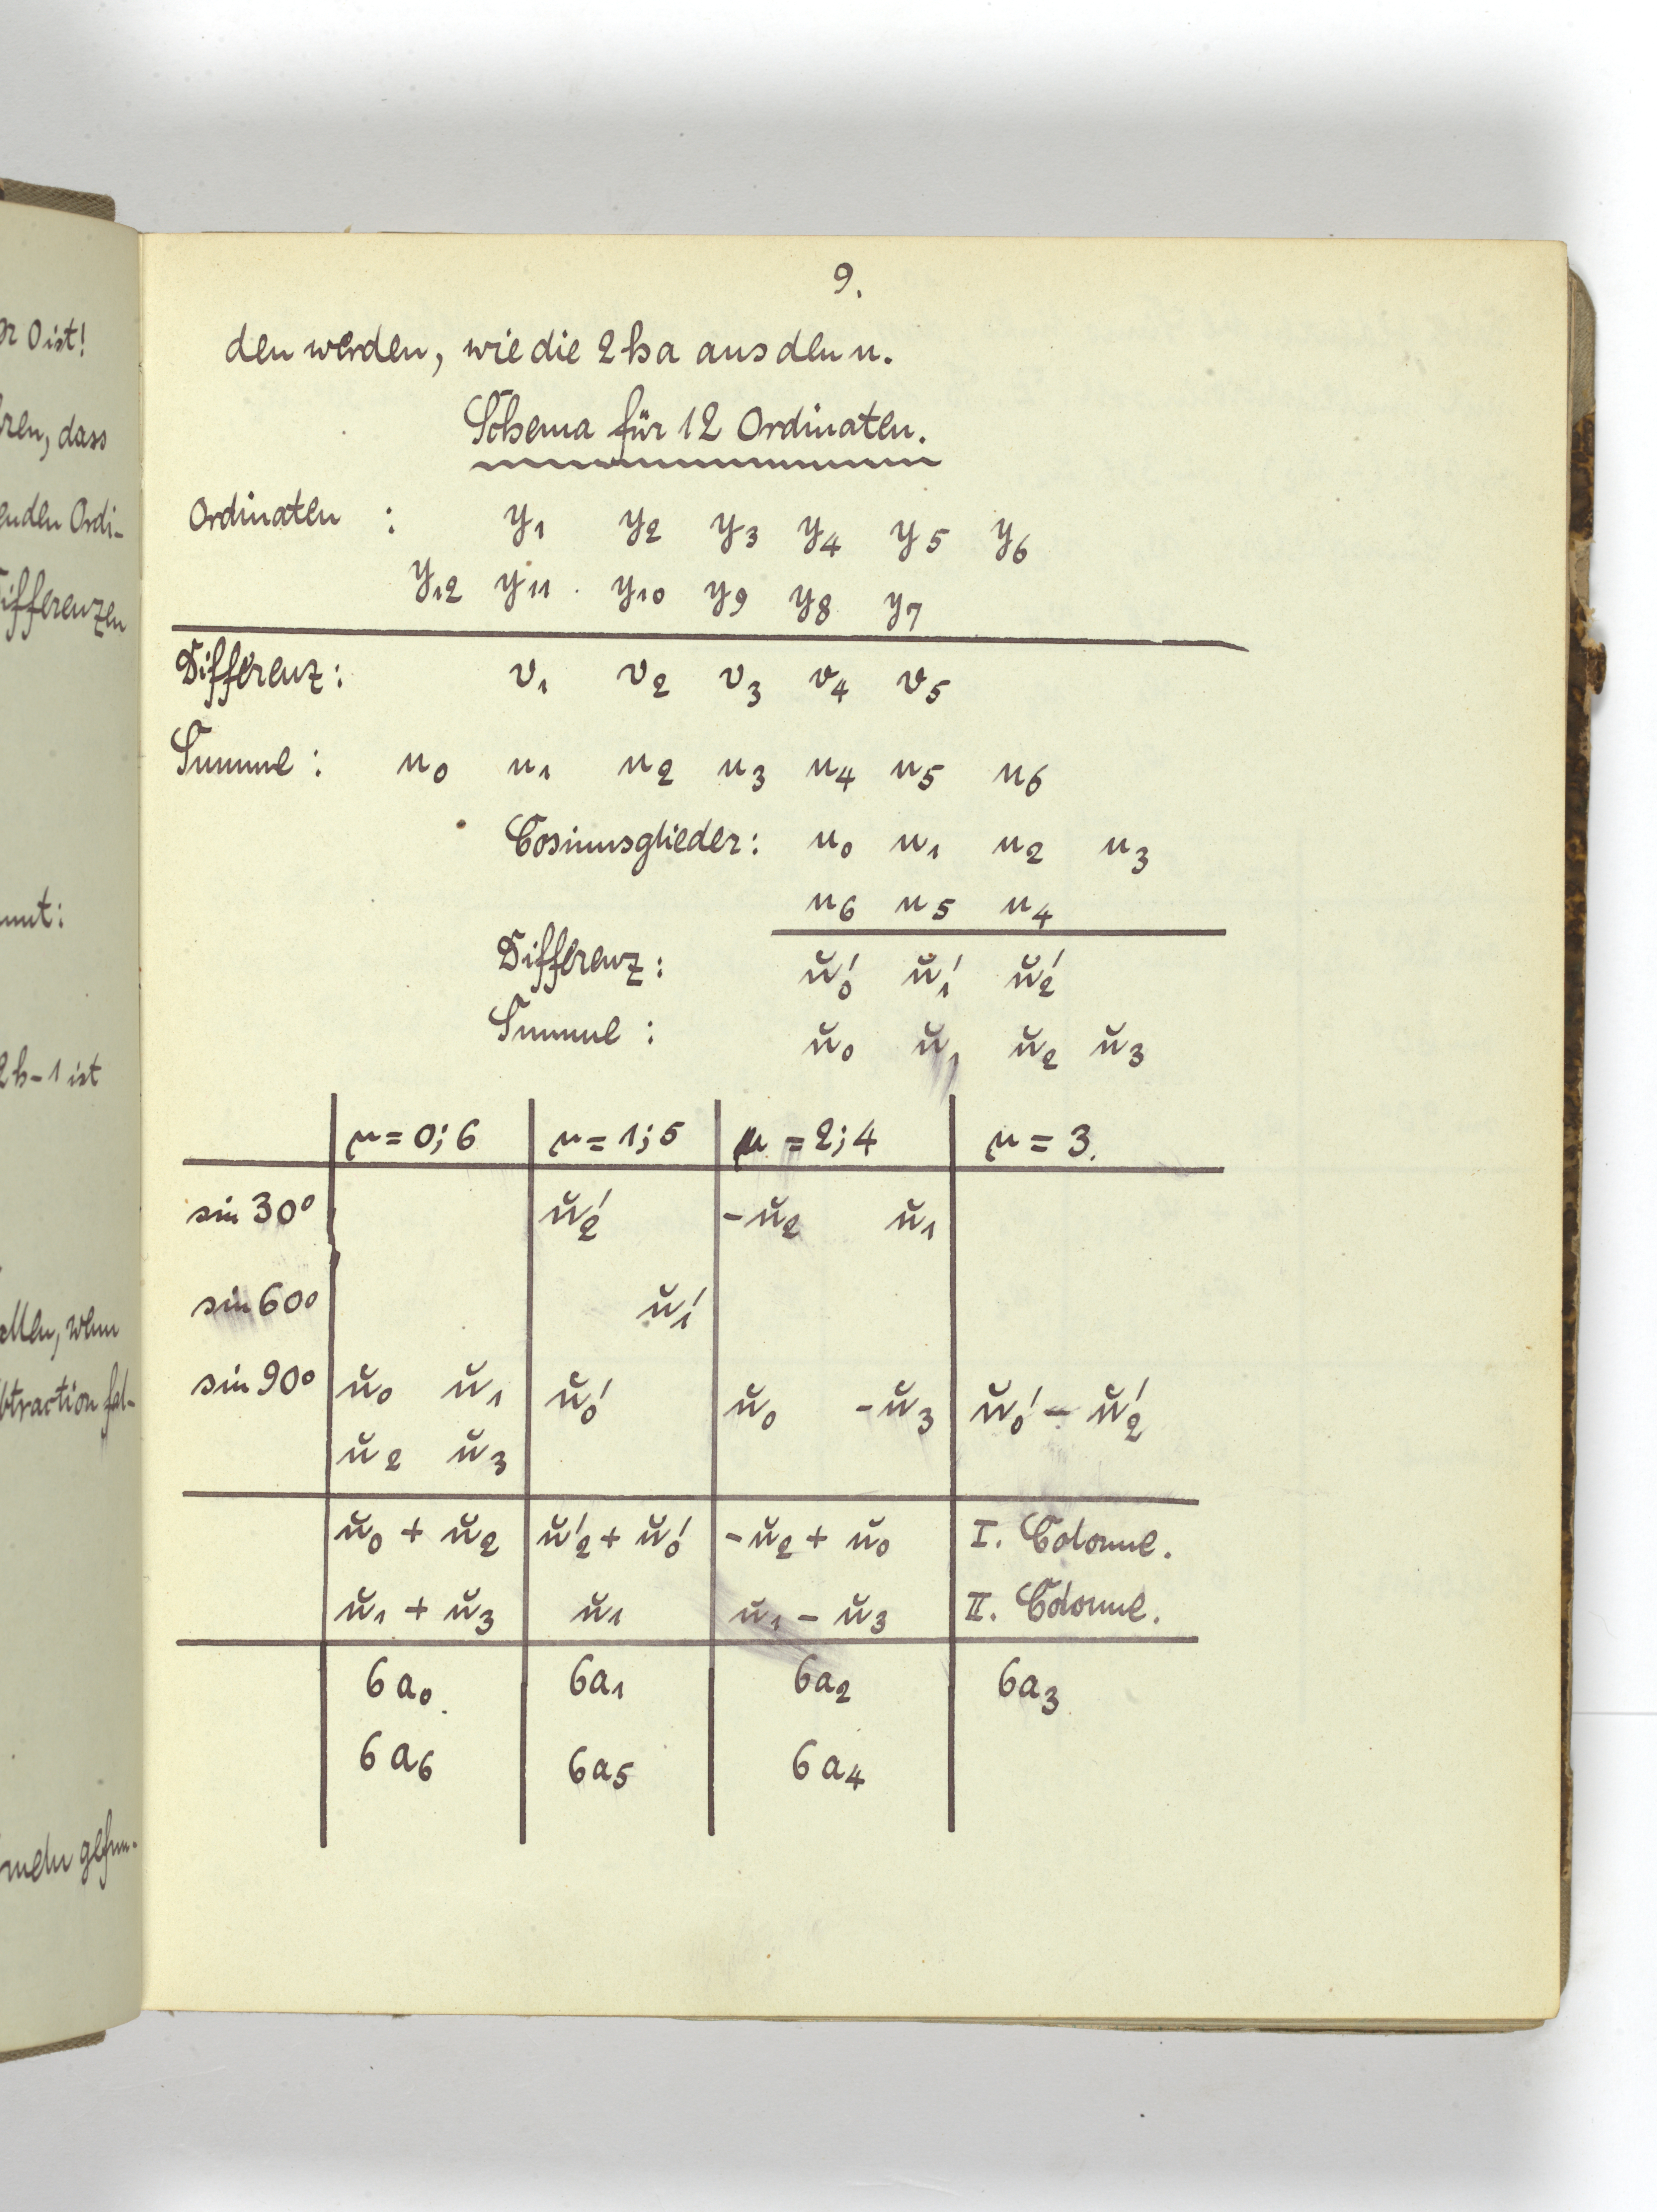 er 0 ist!
ren, dass
enden Ordi-
ifferenzen
mt:
2h-1 ist
allen, wenn
btraction fal-
meln gefun-
9.
den werden, wie die 2ha aus den u.
Schema für 12 Ordinaten.
Ordinaten : y₁ y₂ y₃ y₄ y₅ y₆
y₁₂ y₁₁ y₁₀ y₉ y₈ y₇
Differenz: v₁ v₂ v₃ v₄ v₅
Summe: u₀ u₁ u₂ u₃ u₄ u₅ u₆
Cosinusglieder: u₀ u₁ u₂ u₃
u₆ u₅ u₄
Differenz: ŭ₀' ŭ₁' ŭ₂'
Summe: ŭ₀ ŭ₁ ŭ₂ ŭ₃
μ=0;6 μ=1;5 μ=2;4 μ=3.
sin 30° ŭ₂' -ŭ₂ ŭ₁
sin 60° ŭ₁'
sin 90° ŭ₀ ŭ₁ ŭ₀' ŭ₀ -ŭ₃ ŭ₀' - ŭ₂'
ŭ₂ ŭ₃
ŭ₀ + ŭ₂ ŭ₂' + ŭ₀' -ŭ₂ + ŭ₀ I. Colonne.
ŭ₁ + ŭ₃ ŭ₁ ŭ₁ - ŭ₃ II. Colonne.
6a₀. 6a₁ 6a₂ 6a₃
6a₆ 6a₅ 6a₄